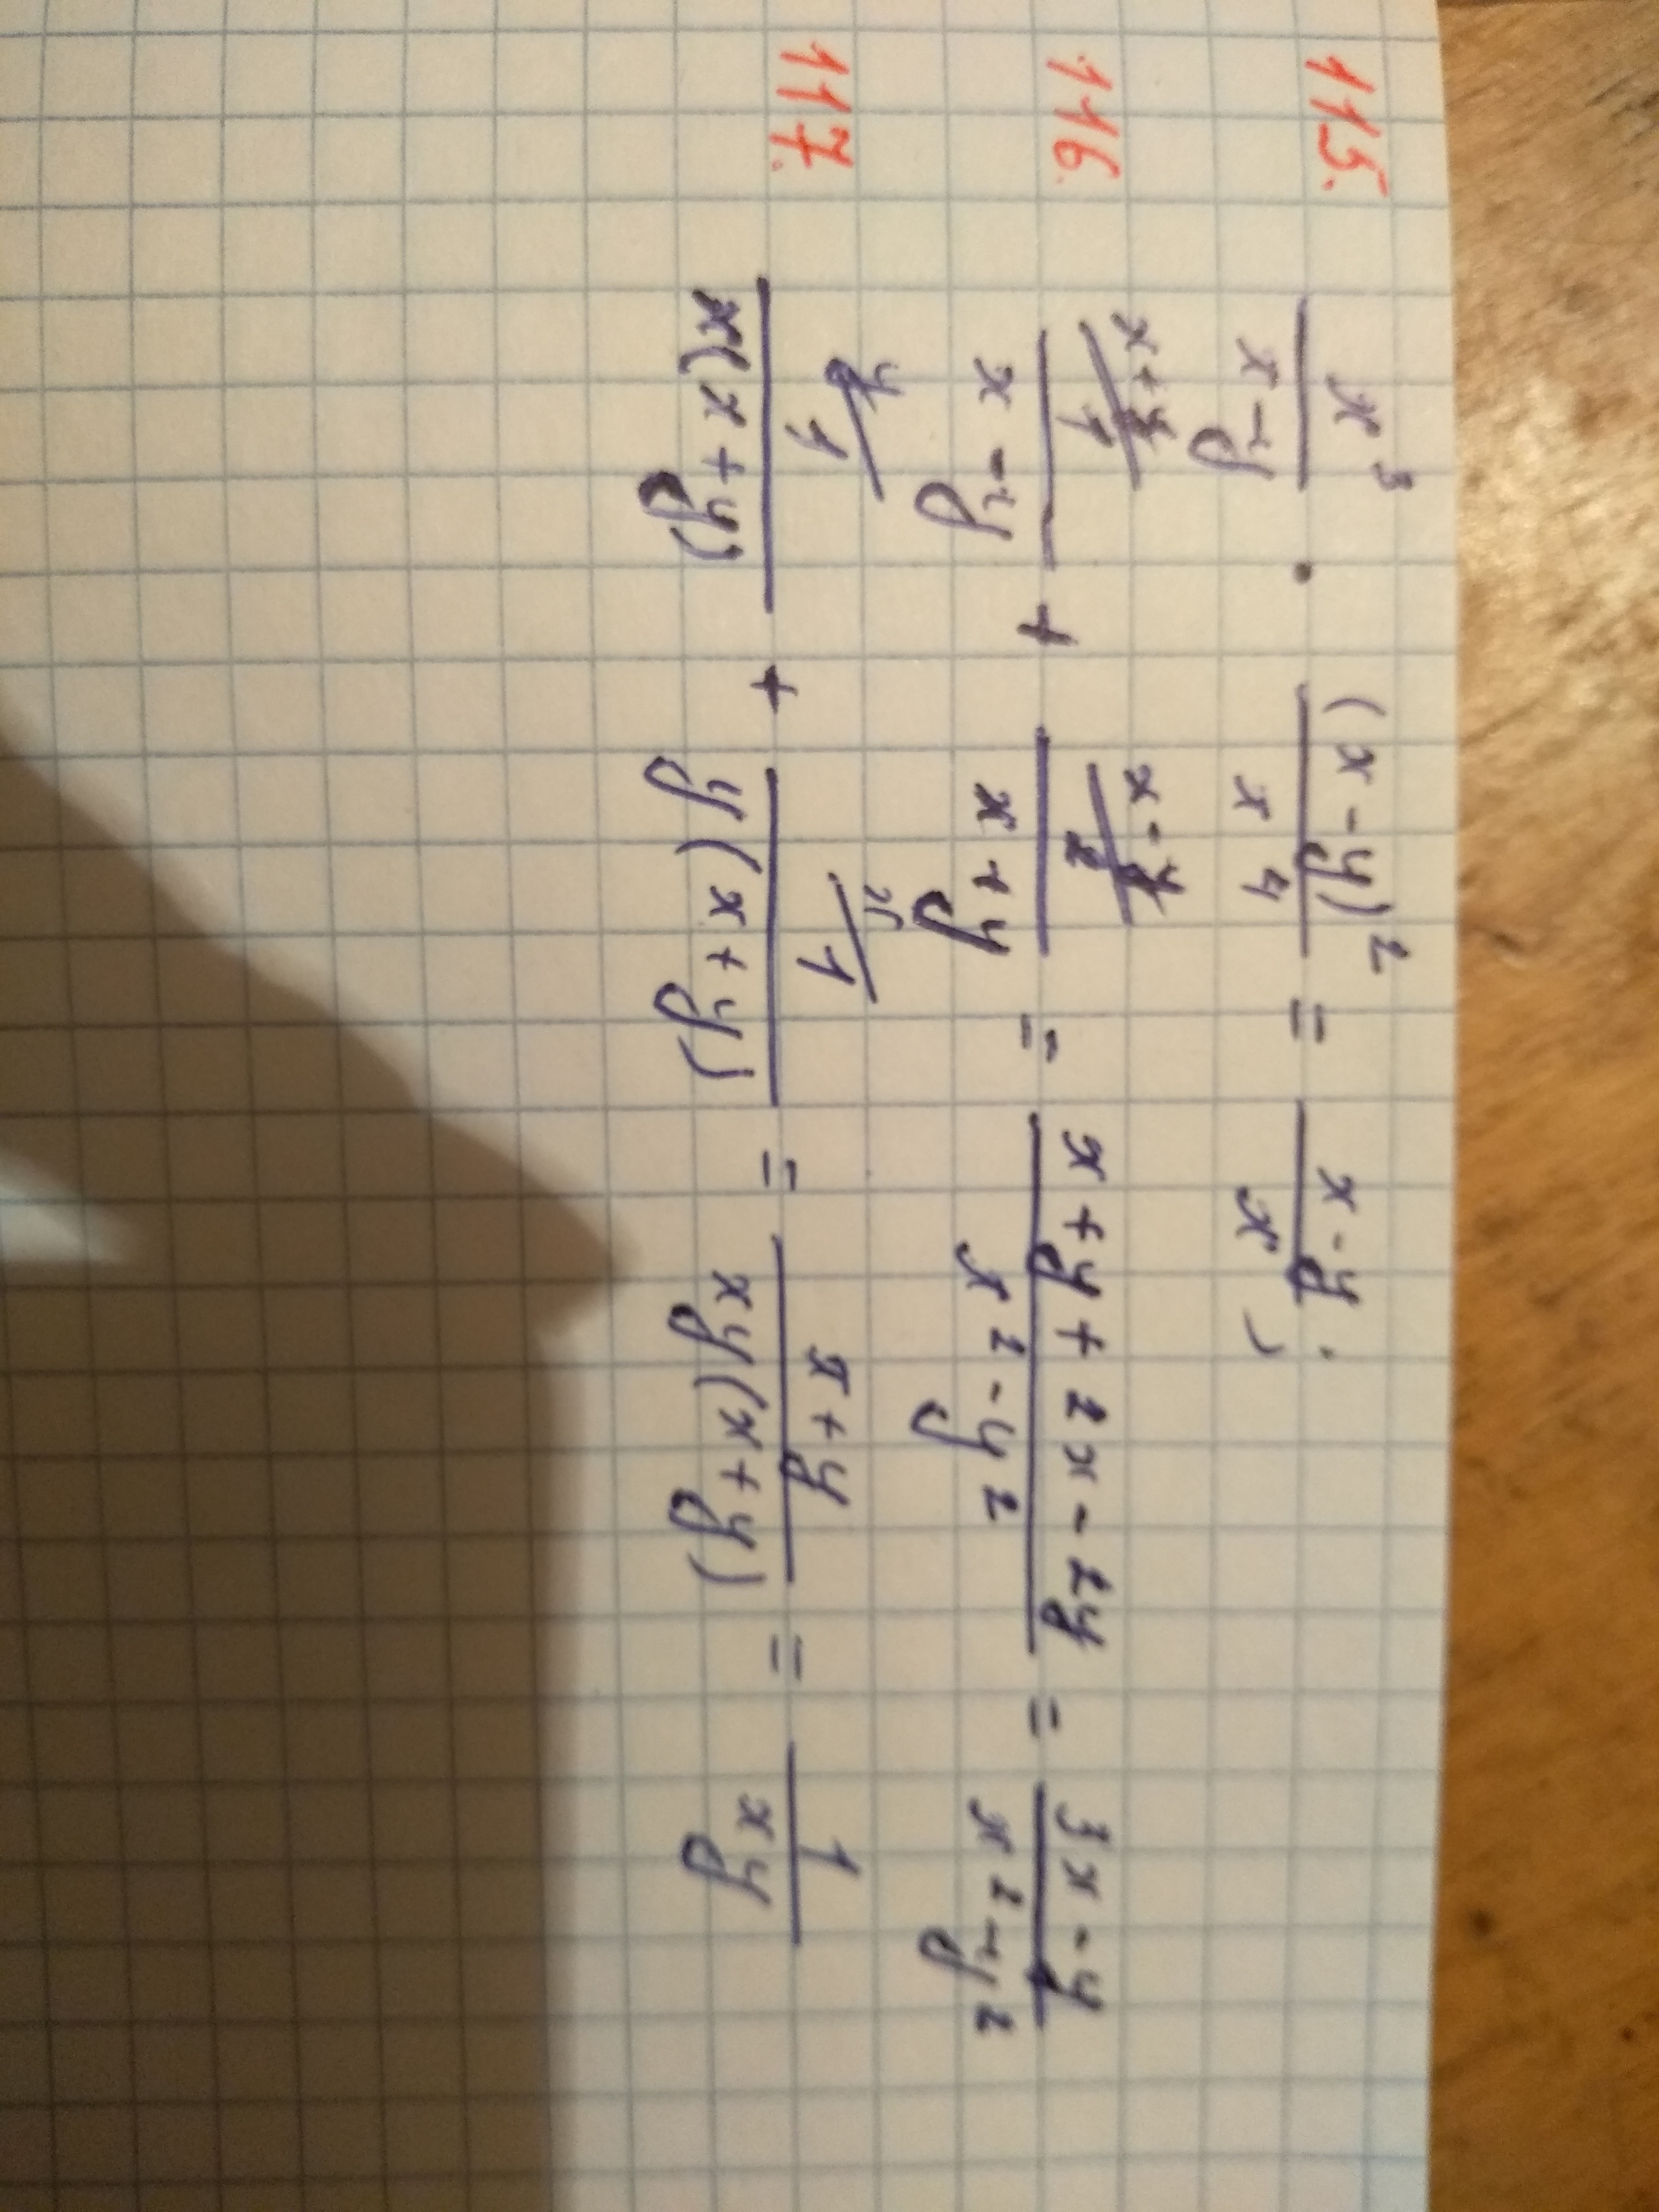 115. x³/(x-y) · (x-y)²/x⁴ = (x-y)/x ;
116. x+y/ 1/(x-y) + x-y/ 2/(x+y) = (x+y+2x-2y)/(x²-y²) = (3x-y)/(x²-y²)
117. y/ 1/(x(x+y)) + x/ 1/(y(x+y)) = (x+y)/(xy(x+y)) = 1/(xy)